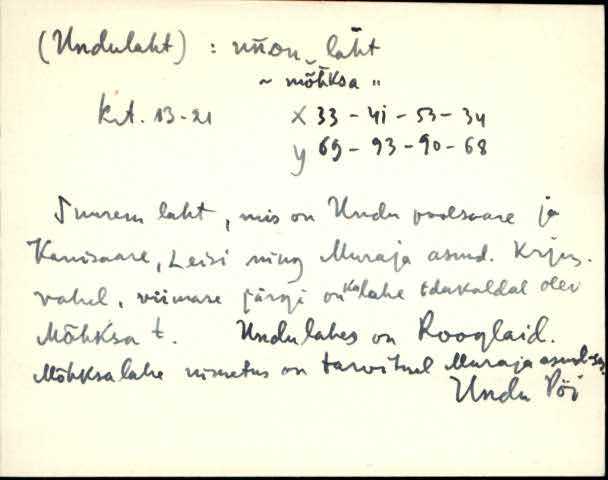 (Undulaht) : uñou‿laht
~ mõhksa "
Krt. 13-21 X 33 - 41 - 53 - 34
y 69 - 93 - 90 - 68
Suurem laht, mis on Undu poolsaare ja
Kanisaare, Leisi ning Muraja asund. Krjn.
vahel, viimase järgi on ka lahe idakaldal olev
Mõhksa t. Undulahes on Rooglaid.
Mõhksalahe nimetus on tarvitusel Muraja asund-s.
Undu Pöi